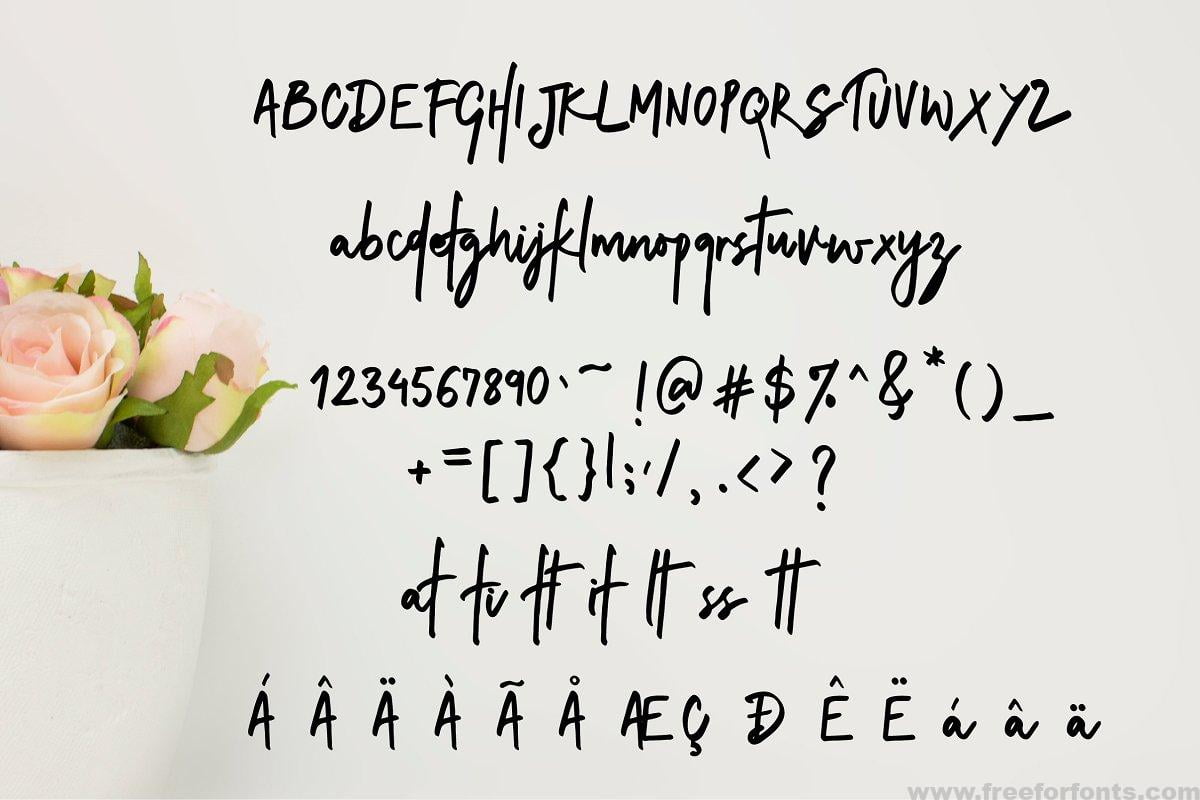 ABCDEFGHIJKLMNOPQRSTUVWXYZ
abcdefghijklmnopqrstuvwxyz
1234567890`~!@#$%^&*()_
+=[]{}|;'/,.<>?
af fi ff if lt ss tt
Á Â Ä À Ã Å Æ Ç Ð Ê Ë á â ä
www.freeforfonts.com